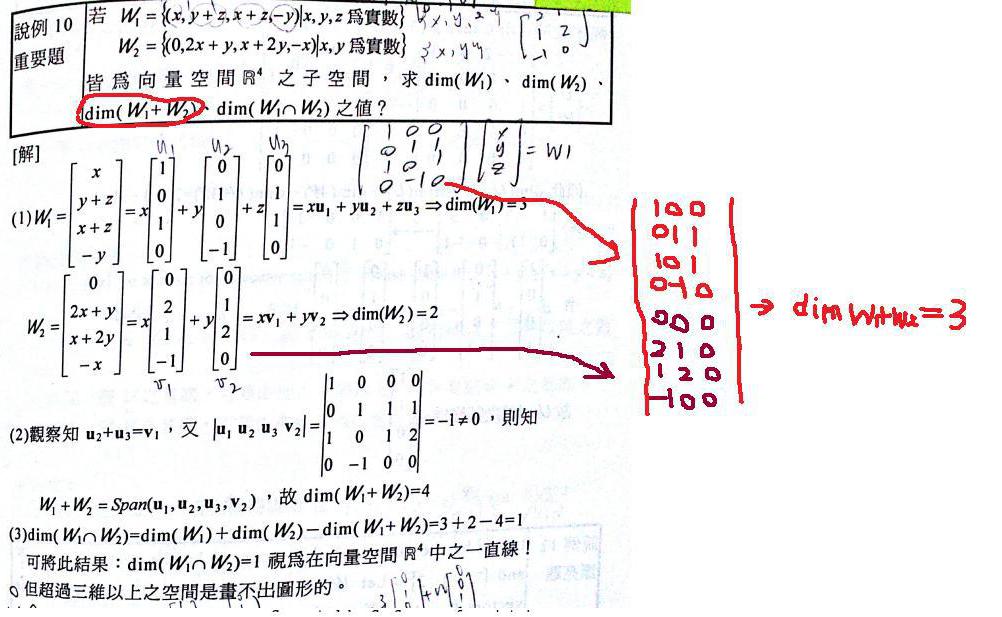 說例 10
重要題
若 W₁ = {(x, y+z, x+z, −y)|x, y, z 為實數}
W₂ = {(0, 2x+y, x+2y, −x)|x, y 為實數}
皆為向量空間 ℝ⁴ 之子空間，求 dim(W₁)、dim(W₂)、
dim(W₁+W₂)、dim(W₁∩W₂) 之值？
1 2
-1 0
[解]
u₁ u₂ u₃
[1 0 0; 0 1 1; 1 0 1; 0 -1 0] [x; y; z] = W1
(1) W₁ = [x; y+z; x+z; −y] = x[1; 0; 1; 0] + y[0; 1; 0; −1] + z[0; 1; 1; 0] = xu₁ + yu₂ + zu₃ ⇒ dim(W₁) = 3
W₂ = [0; 2x+y; x+2y; −x] = x[0; 2; 1; −1] + y[0; 1; 2; 0] = xv₁ + yv₂ ⇒ dim(W₂) = 2
v₁ v₂
1 0 0
0 1 1
1 0 1
0 -1 0
0 0 0
2 1 0
1 2 0
-1 0 0
→ dim W1+W2 = 3
(2)觀察知 u₂+u₃=v₁，又 |u₁ u₂ u₃ v₂| = |1 0 0 0; 0 1 1 1; 1 0 1 2; 0 −1 0 0| = −1 ≠ 0，則知
W₁+W₂ = Span(u₁, u₂, u₃, v₂)，故 dim(W₁+W₂)=4
(3)dim(W₁∩W₂)=dim(W₁)+dim(W₂)−dim(W₁+W₂)=3+2−4=1
可將此結果：dim(W₁∩W₂)=1 視為在向量空間 ℝ⁴ 中之一直線！
但超過三維以上之空間是畫不出圖形的。